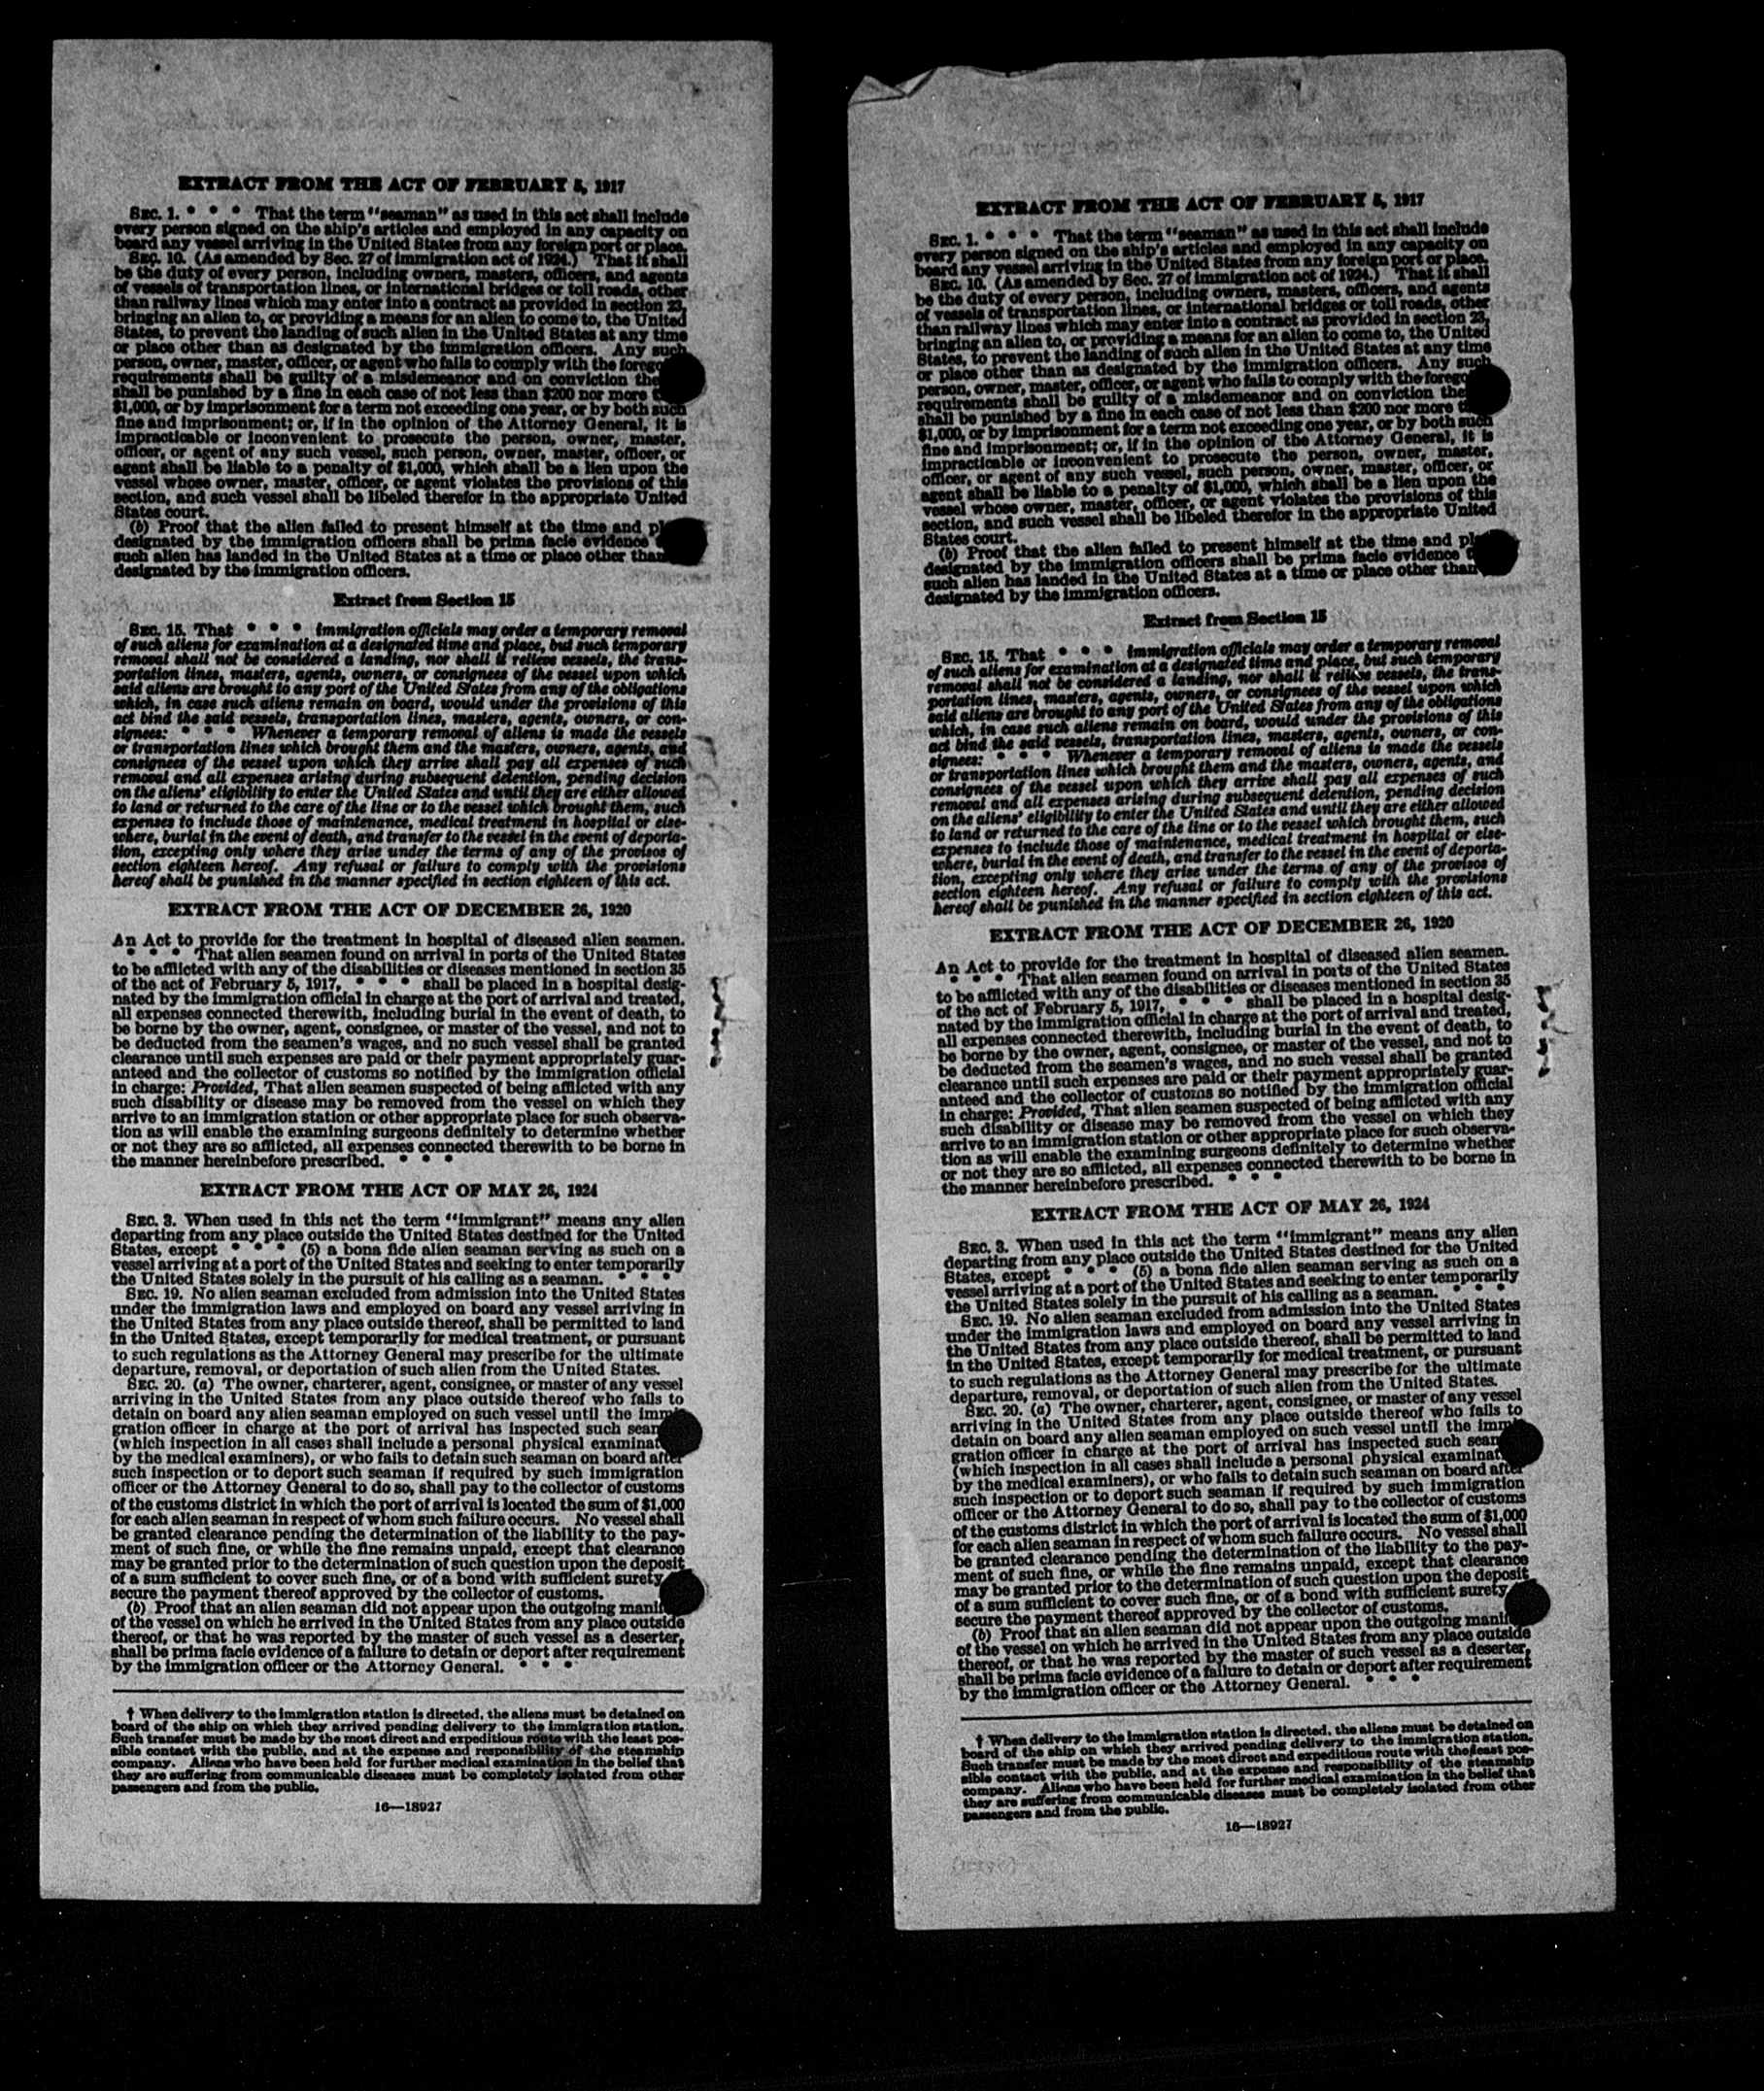 EXTRACT FROM THE ACT OF FEBRUARY 5, 1917
SEC. 1. * * * That the term "seaman" as used in this act shall include
every person signed on the ship's articles and employed in any capacity on
board any vessel arriving in the United States from any foreign port or place.
SEC. 10. (As amended by Sec. 27 of immigration act of 1924.) That it shall
be the duty of every person, including owners, masters, officers, and agents
of vessels of transportation lines, or international bridges or toll roads, other
than railway lines which may enter into a contract as provided in section 23,
bringing an alien to, or providing a means for an alien to come to, the United
States, to prevent the landing of such alien in the United States at any time
or place other than as designated by the immigration officers. Any such
person, owner, master, officer, or agent who fails to comply with the forego
requirements shall be guilty of a misdemeanor and on conviction the
shall be punished by a fine in each case of not less than $200 nor more
$1,000, or by imprisonment for a term not exceeding one year, or by both such
fine and imprisonment; or, if in the opinion of the Attorney General, it is
impracticable or inconvenient to prosecute the person, owner, master,
officer, or agent of any such vessel, such person, owner, master, officer, or
agent shall be liable to a penalty of $1,000, which shall be a lien upon the
vessel whose owner, master, officer, or agent violates the provisions of this
section, and such vessel shall be libeled therefor in the appropriate United
States court.
(b) Proof that the alien failed to present himself at the time and pl
designated by the immigration officers shall be prima facie evidence
such alien has landed in the United States at a time or place other than
designated by the immigration officers.
Extract from Section 15
SEC. 15. That * * * immigration officials may order a temporary removal
of such aliens for examination at a designated time and place, but such temporary
removal shall not be considered a landing, nor shall it relieve vessels, the trans-
portation lines, masters, agents, owners, or consignees of the vessel upon which
said aliens are brought to any port of the United States from any of the obligations
which, in case such aliens remain on board, would under the provisions of this
act bind the said vessels, transportation lines, masters, agents, owners, or con-
signees: * * * Whenever a temporary removal of aliens is made the vessels
or transportation lines which brought them and the masters, owners, agents, and
consignees of the vessel upon which they arrive shall pay all expenses of such
removal and all expenses arising during subsequent detention, pending decision
on the aliens' eligibility to enter the United States and until they are either allowed
to land or returned to the care of the line or to the vessel which brought them, such
expenses to include those of maintenance, medical treatment in hospital or else-
where, burial in the event of death, and transfer to the vessel in the event of deporta-
tion, excepting only where they arise under the terms of any of the provisos of
section eighteen hereof. Any refusal or failure to comply with the provisions
hereof shall be punished in the manner specified in section eighteen of this act.
EXTRACT FROM THE ACT OF DECEMBER 26, 1920
An Act to provide for the treatment in hospital of diseased alien seamen.
* * * That alien seamen found on arrival in ports of the United States
to be afflicted with any of the disabilities or diseases mentioned in section 35
of the act of February 5, 1917, * * * shall be placed in a hospital desig-
nated by the immigration official in charge at the port of arrival and treated,
all expenses connected therewith, including burial in the event of death, to
be borne by the owner, agent, consignee, or master of the vessel, and not to
be deducted from the seamen's wages, and no such vessel shall be granted
clearance until such expenses are paid or their payment appropriately guar-
anteed and the collector of customs so notified by the immigration official
in charge: Provided, That alien seamen suspected of being afflicted with any
such disability or disease may be removed from the vessel on which they
arrive to an immigration station or other appropriate place for such observa-
tion as will enable the examining surgeons definitely to determine whether
or not they are so afflicted, all expenses connected therewith to be borne in
the manner hereinbefore prescribed. * * *
EXTRACT FROM THE ACT OF MAY 26, 1924
SEC. 3. When used in this act the term "immigrant" means any alien
departing from any place outside the United States destined for the United
States, except * * * (5) a bona fide alien seaman serving as such on a
vessel arriving at a port of the United States and seeking to enter temporarily
the United States solely in the pursuit of his calling as a seaman. * * *
SEC. 19. No alien seaman excluded from admission into the United States
under the immigration laws and employed on board any vessel arriving in
the United States from any place outside thereof, shall be permitted to land
in the United States, except temporarily for medical treatment, or pursuant
to such regulations as the Attorney General may prescribe for the ultimate
departure, removal, or deportation of such alien from the United States.
SEC. 20. (a) The owner, charterer, agent, consignee, or master of any vessel
arriving in the United States from any place outside thereof who fails to
detain on board any alien seaman employed on such vessel until the immi
gration officer in charge at the port of arrival has inspected such seam
(which inspection in all cases shall include a personal physical examinat
by the medical examiners), or who fails to detain such seaman on board after
such inspection or to deport such seaman if required by such immigration
officer or the Attorney General to do so, shall pay to the collector of customs
of the customs district in which the port of arrival is located the sum of $1,000
for each alien seaman in respect of whom such failure occurs. No vessel shall
be granted clearance pending the determination of the liability to the pay-
ment of such fine, or while the fine remains unpaid, except that clearance
may be granted prior to the determination of such question upon the deposit
of a sum sufficient to cover such fine, or of a bond with sufficient surety
secure the payment thereof approved by the collector of customs.
(b) Proof that an alien seaman did not appear upon the outgoing manif
of the vessel on which he arrived in the United States from any place outside
thereof, or that he was reported by the master of such vessel as a deserter,
shall be prima facie evidence of a failure to detain or deport after requirement
by the immigration officer or the Attorney General. * * *
† When delivery to the immigration station is directed, the aliens must be detained on
board of the ship on which they arrived pending delivery to the immigration station.
Such transfer must be made by the most direct and expeditious route with the least pos-
sible contact with the public, and at the expense and responsibility of the steamship
company. Aliens who have been held for further medical examination in the belief that
they are suffering from communicable diseases must be completely isolated from other
passengers and from the public.
16—18927
EXTRACT FROM THE ACT OF FEBRUARY 5, 1917
SEC. 1. * * * That the term "seaman" as used in this act shall include
every person signed on the ship's articles and employed in any capacity on
board any vessel arriving in the United States from any foreign port or place.
SEC. 10. (As amended by Sec. 27 of immigration act of 1924.) That it shall
be the duty of every person, including owners, masters, officers, and agents
of vessels of transportation lines, or international bridges or toll roads, other
than railway lines which may enter into a contract as provided in section 23,
bringing an alien to, or providing a means for an alien to come to, the United
States, to prevent the landing of such alien in the United States at any time
or place other than as designated by the immigration officers. Any such
person, owner, master, officer, or agent who fails to comply with the forego
requirements shall be guilty of a misdemeanor and on conviction the
shall be punished by a fine in each case of not less than $200 nor more
$1,000, or by imprisonment for a term not exceeding one year, or by both such
fine and imprisonment; or, if in the opinion of the Attorney General, it is
impracticable or inconvenient to prosecute the person, owner, master,
officer, or agent of any such vessel, such person, owner, master, officer, or
agent shall be liable to a penalty of $1,000, which shall be a lien upon the
vessel whose owner, master, officer, or agent violates the provisions of this
section, and such vessel shall be libeled therefor in the appropriate United
States court.
(b) Proof that the alien failed to present himself at the time and pl
designated by the immigration officers shall be prima facie evidence
such alien has landed in the United States at a time or place other than
designated by the immigration officers.
Extract from Section 15
SEC. 15. That * * * immigration officials may order a temporary removal
of such aliens for examination at a designated time and place, but such temporary
removal shall not be considered a landing, nor shall it relieve vessels, the trans-
portation lines, masters, agents, owners, or consignees of the vessel upon which
said aliens are brought to any port of the United States from any of the obligations
which, in case such aliens remain on board, would under the provisions of this
act bind the said vessels, transportation lines, masters, agents, owners, or con-
signees: * * * Whenever a temporary removal of aliens is made the vessels
or transportation lines which brought them and the masters, owners, agents, and
consignees of the vessel upon which they arrive shall pay all expenses of such
removal and all expenses arising during subsequent detention, pending decision
on the aliens' eligibility to enter the United States and until they are either allowed
to land or returned to the care of the line or to the vessel which brought them, such
expenses to include those of maintenance, medical treatment in hospital or else-
where, burial in the event of death, and transfer to the vessel in the event of deporta-
tion, excepting only where they arise under the terms of any of the provisos of
section eighteen hereof. Any refusal or failure to comply with the provisions
hereof shall be punished in the manner specified in section eighteen of this act.
EXTRACT FROM THE ACT OF DECEMBER 26, 1920
An Act to provide for the treatment in hospital of diseased alien seamen.
* * * That alien seamen found on arrival in ports of the United States
to be afflicted with any of the disabilities or diseases mentioned in section 35
of the act of February 5, 1917, * * * shall be placed in a hospital desig-
nated by the immigration official in charge at the port of arrival and treated,
all expenses connected therewith, including burial in the event of death, to
be borne by the owner, agent, consignee, or master of the vessel, and not to
be deducted from the seamen's wages, and no such vessel shall be granted
clearance until such expenses are paid or their payment appropriately guar-
anteed and the collector of customs so notified by the immigration official
in charge: Provided, That alien seamen suspected of being afflicted with any
such disability or disease may be removed from the vessel on which they
arrive to an immigration station or other appropriate place for such observa-
tion as will enable the examining surgeons definitely to determine whether
or not they are so afflicted, all expenses connected therewith to be borne in
the manner hereinbefore prescribed. * * *
EXTRACT FROM THE ACT OF MAY 26, 1924
SEC. 3. When used in this act the term "immigrant" means any alien
departing from any place outside the United States destined for the United
States, except * * * (5) a bona fide alien seaman serving as such on a
vessel arriving at a port of the United States and seeking to enter temporarily
the United States solely in the pursuit of his calling as a seaman. * * *
SEC. 19. No alien seaman excluded from admission into the United States
under the immigration laws and employed on board any vessel arriving in
the United States from any place outside thereof, shall be permitted to land
in the United States, except temporarily for medical treatment, or pursuant
to such regulations as the Attorney General may prescribe for the ultimate
departure, removal, or deportation of such alien from the United States.
SEC. 20. (a) The owner, charterer, agent, consignee, or master of any vessel
arriving in the United States from any place outside thereof who fails to
detain on board any alien seaman employed on such vessel until the immi
gration officer in charge at the port of arrival has inspected such seam
(which inspection in all cases shall include a personal physical examinat
by the medical examiners), or who fails to detain such seaman on board after
such inspection or to deport such seaman if required by such immigration
officer or the Attorney General to do so, shall pay to the collector of customs
of the customs district in which the port of arrival is located the sum of $1,000
for each alien seaman in respect of whom such failure occurs. No vessel shall
be granted clearance pending the determination of the liability to the pay-
ment of such fine, or while the fine remains unpaid, except that clearance
may be granted prior to the determination of such question upon the deposit
of a sum sufficient to cover such fine, or of a bond with sufficient surety
secure the payment thereof approved by the collector of customs.
(b) Proof that an alien seaman did not appear upon the outgoing manif
of the vessel on which he arrived in the United States from any place outside
thereof, or that he was reported by the master of such vessel as a deserter,
shall be prima facie evidence of a failure to detain or deport after requirement
by the immigration officer or the Attorney General. * * *
† When delivery to the immigration station is directed, the aliens must be detained on
board of the ship on which they arrived pending delivery to the immigration station.
Such transfer must be made by the most direct and expeditious route with the least pos-
sible contact with the public, and at the expense and responsibility of the steamship
company. Aliens who have been held for further medical examination in the belief that
they are suffering from communicable diseases must be completely isolated from other
passengers and from the public.
16—18927